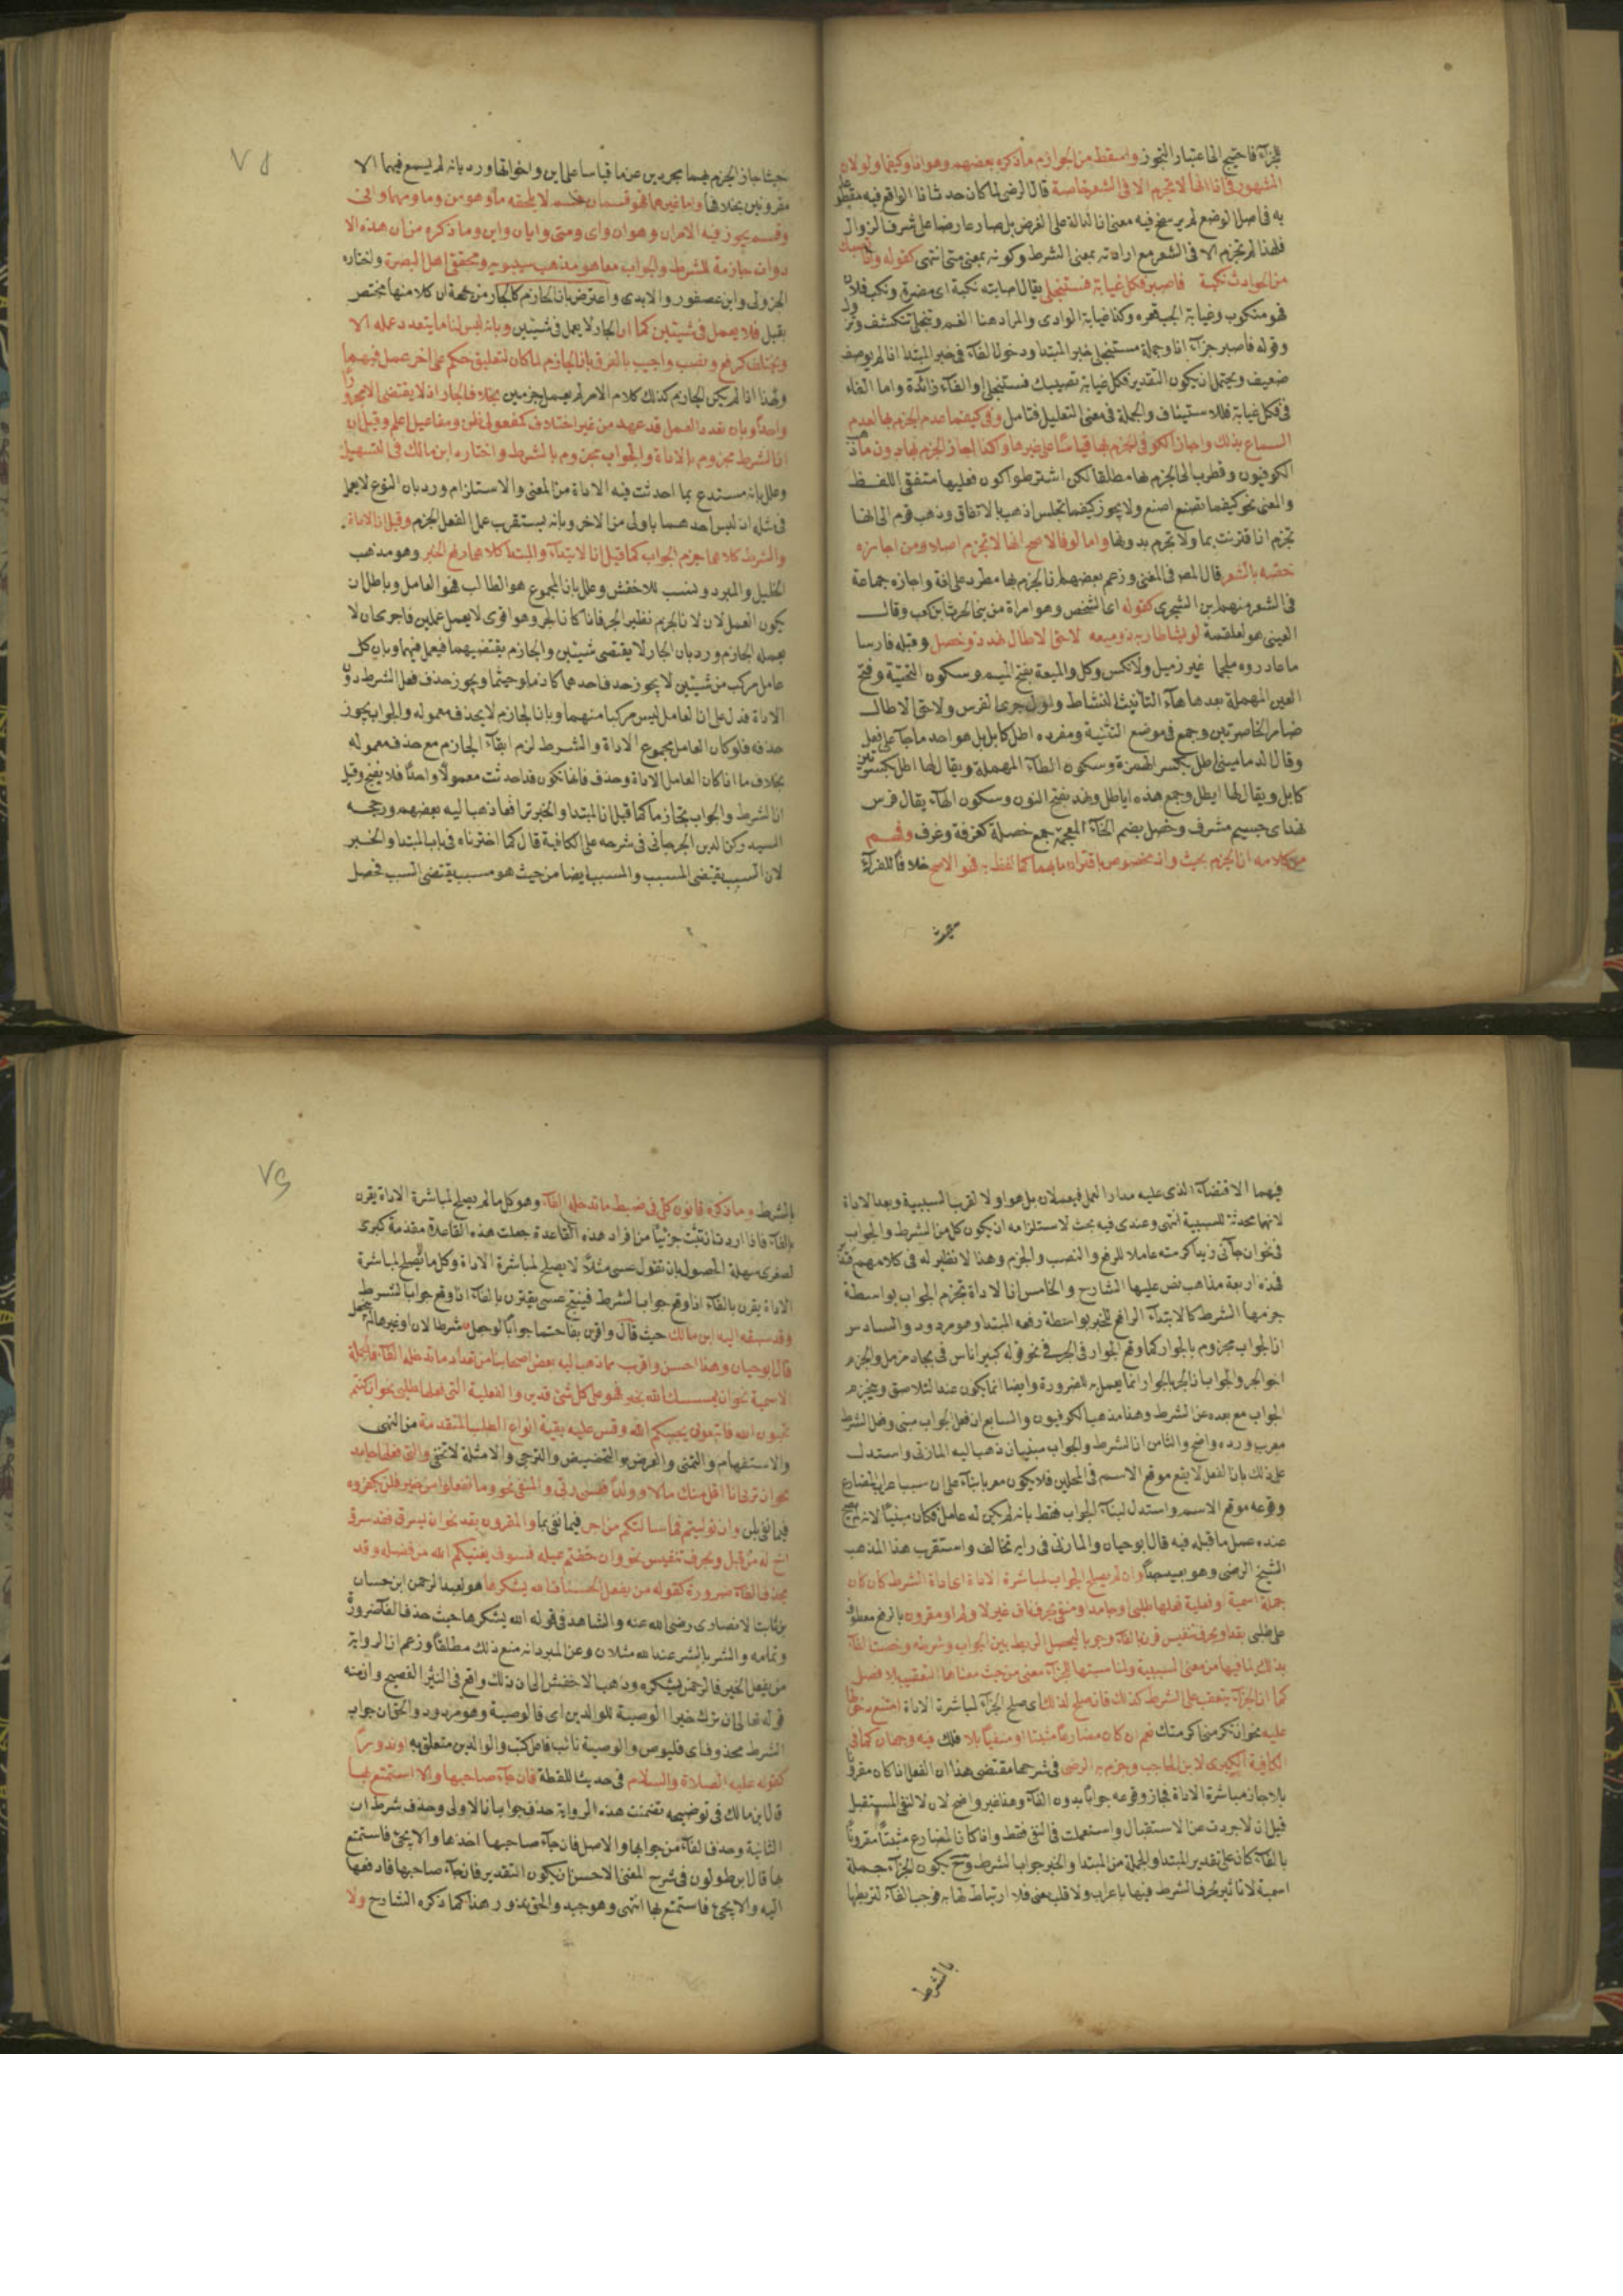 للجزاء فاحتيج الى اعتبار التجوز واسقط من الجوازم ما ذكره بعضهم وهو اذا وكيفما ولو لان
المشهور في اذا انها لا تجزم الا في الشعر خاصة قال الرضى لما كان حدث اذا الواقع فيه مقطوعا
به في اصل الوضع لم يرسخ فيه معنى ان الدالة على الفرض بل صار عارضا على شرف الزوال
فلهذا لم تجزم الا في الشعر مع ارادته بمعنى الشرط وكونه بمعنى متى انتهى كقوله واذا تصبك
من الحوادث نكبة فاصبر فكل غيابة فستنجلى يقال اصابته نكبة اى مضرة ونكب فلان
فهو منكوب وغيابة الجب قعره وكذا غيابة الوادى والمراد هنا الغم وتنجلى تنكشف وتزول
وقوله فاصبر جزاء اذا وجملة فستنجلى خبر المبتدا ودخول الفاء في خبر المبتدا اذا لم يوصف
ضعيف ويحتمل ان يكون التقدير فكل غيابة تصيبك فستنجلى او الفاء زائدة واما الفاء
في فكل غيابة فللاستيناف والجملة في معنى التعليل فتامل وفي كيفما عدم الجزم بها لعدم
السماع بذلك واجاز الكوفي الجزم بها قياسا على غيرها وكذا اجاز الجزم بها دون ما
الكوفيون وقطرب الى الجزم بها مطلقا لكن اشترطوا كون فعليها متفقى اللفظ
والمعنى نحو كيفما تصنع اصنع ولا يجوز كيفما تجلس اذهب بالاتفاق وذهب قوم الى انها
تجزم اذا اقترنت بما ولا تجزم بدونها واما لو فالاصح انها لا تجزم اصلا ومن اجازه
خصه بالشعر قال المص في المغنى وزعم بعضهم ان الجزم بها مطرد على لغة واجازه جماعة
في الشعر منهم ابن الشجرى كقوله اى الشخص وهو امراة من بنى الحرث ابن كعب وقال
العينى هو لعلقمة لو يشا طار به ذو ميعة لاحق الاطال نهد ذو خصل وقبله فارسا
ما غادروه ملجما غير زميل ولا نكس وكل والميعة بفتح الميم وسكون التحتية وفتح
العين المهملة بعدها هاء التانيث النشاط واول جرى الفرس ولاحق الاطال
ضامر الخاصرتين وجمع في موضع التثنية ومفرده اطل كابل بل هو احد ما جاء على فعل
وقال الدماميني اطل بكسر الهمزة وسكون الطاء المهملة ويقال لها اطل بكسرتين
كابل ويقال لها ايطل وجمع هذه اياطل ونهد بفتح النون وسكون الهاء يقال فرس
نهد اى جسيم مشرف وخصل بضم الخاء المعجمة جمع خصلة كغرفة وغرف وفهم
من كلامه ان الجزم بحيث واذ مخصوص باقترانهما بما كما لفظ به فهو الاصح خلافا للفراء
حيث
حيث اجاز الجزم بهما مجردين عن ما قياسا على اين واخواتها ورد بانه لم يسمع فيهما الا
مقرونين بخلافها واما غيرهما فهو قسمان قسم لا يلحقه ما وهو من وما ومهما وانى
وقسم يجوز فيه الامران وهو ان واى ومتى وايان واين وما ذكره من ان هذه الا
دوات جازمة للشرط والجواب معا هو مذهب سيبويه ومحققى اهل البصرة واختاره
الجزولى وابن عصفور والابدى واعترض بان الجازم كالجار من جهة ان كلا منهما مختص
بقبيل فلا يعمل في شيئين كما ان الجار لا يعمل في شيئين وبانه ليس لنا ما يتعدد عمله الا
ويختلف كرفع ونصب واجيب بالفرق بان الجازم لما كان لتعليق حكم على اخر عمل فيهما
ولهذا اذا لم يكن الجازم كذلك كلام الامر لم يعمل جزمين بخلاف الجار اذ لا يقتضى الا مجرورا
واحدا وبان تعدد العمل قد عهد من غير اختلاف كمفعولى ظن ومفاعيل اعلم وقيل ان
ان الشرط مجزوم بالاداة والجواب مجزوم بالشرط واختاره ابن مالك في التسهيل
وعلل بانه مستدع بما احدثت فيه الاداة من المعنى والاستلزام ورد بان النوع لا يعمل
في مثله اذ ليس احدهما باولى من الاخر وبانه يستغرب عمل الفعل الجزم وقيل ان الاداة
والشرط كلاهما جزم الجواب كما قيل ان الابتداء والمبتدا كلاهما رفع الخبر وهو مذهب
الخليل والمبرد ونسب للاخفش وعلل بان المجموع هو الطالب فهو العامل وباطل ان
يكون العمل لان لان الجزم نظير الجر فاذا كان الجر وهو اقوى لا يعمل عملين فاحرى ان لا
يعمله الجازم ورد بان الجار لا يقتضى شيئين والجازم يقتضيهما فيعمل فيهما وبان كل
عامل مركب من شيئين لا يجوز حذف احدهما كاذما وحيثما ويجوز حذف فعل الشرط دون
الاداة فدل على ان العامل ليس مركبا منهما وبان الجازم لا يحذف معموله والجواب يجوز
حذفه فلو كان العامل مجموع الاداة والشرط لزم ابقاء الجازم مع حذف معموله
بخلاف ما اذا كان العامل الاداة وحذف فانها تكون قد احدثت معمولا واحدا فلا يقبح وقيل
ان الشرط والجواب تجازما كما قيل ان المبتدا والخبر ترافعا ذهب اليه بعضهم ورجحه
السيد ركن الدين الجرجانى في شرحه على الكافية قال كما اخترناه في باب المبتدا والخبر
لان السبب يقتضى المسبب والمسبب ايضا من حيث هو مسبب يقتضى السبب فحصل
فيهما الاقتضاء الذى عليه مدار العمل فيعملان بل هو اولا لقرب السببية وبعد الاداة
لانها محدثة للسببية انتهى وعندى فيه بحث لاستلزامه ان يكون كل من الشرط والجواب
في نحو ان جاءنى زيد اكرمته عاملا للرفع والنصب والجزم وهذا لا نظير له في كلامهم
فهذه اربعة مذاهب نص عليها الشارح والخامس ان الاداة تجزم الجواب بواسطة
جزمها الشرط كالابتداء الرافع للخبر بواسطة رفعه المبتدا وهو مردود والسادس
ان الجواب مجزوم بالجوار كما وقع الجوار في الجر في نحو قوله كبير اناس في بجاد مزمل والجزم
اخو الجر والجواب ان الجر بالجوار انما يعمل به للضرورة وايضا انما يكون عند التلاصق وينجزم
الجواب مع بعده عن الشرط وهذا مذهب الكوفيون والسابع ان فعل الجواب مبنى وفعل الشرط
معرب ورده واضح والثامن ان الشرط والجواب مبنيان ذهب اليه المازنى واستدل
على ذلك بان الفعل لا يقع موقع الاسم في المحلين فلا يكون معربا بناء على ان سبب اعراب المضارع
وقوعه موقع الاسم واستدل لبناء الجواب فقط بانه لم يكن له عامل فكان مبنيا لانه لم يصح
عنده عمل ما قبله فيه قال ابو حيان والمازنى في رايه تخالف واستقرب هذا المذهب
الشيخ الرضى وهو بعيد جدا وان لم يصلح الجواب لمباشرة الاداة اى اداة الشرط كان كان
جملة اسمية او فعلية فعلها طلبى او جامد او منفى بحرف ناف غير لا ولم او مقرون بالرفع معطوف
على طلبى بقد او بحرف تنفيس قرن بالفاء وجوبا ليحصل الربط بين الجواب وشرطه وخصت الفاء
بذلك لما فيها من معنى السببية ولمناسبتها للجزاء معنى من حيث معناها التعقيب بلا فصل
كما ان الجزاء يتعقب على الشرط كذلك فان صلح لذلك اى صلح الجزاء لمباشرة الاداة امتنع دخولها
عليه نحو ان تكرمنى اكرمتك نعم ان كان مضارعا مثبتا او منفيا بلا فلك فيه وجهان كما في
الكافية الكبرى لابن الحاجب وجزم به الرضى في شرحها مقتضى هذا ان الفعل اذا كان مقرونا
بلا جاز مباشرة الاداة فجاز وقوعه جوابا بدون الفاء وهذا غير واضح لان لا لنفى المستقبل
قيل ان لا جردت عن الاستقبال واستعملت في النفى فقط واذا كان المضارع مثبتا مقرونا
بالفاء كان على تقدير المبتدا والجملة من المبتدا والخبر جواب الشرط وح يكون الجزاء جملة
اسمية لا تاثير لحرف الشرط فيها باعراب ولا قلب معنى فلا ارتباط لها به فوجب الفاء لتربطها
بالشرط
بالشرط وما ذكره قانون كلى في ضبط ما تدخله الفاء وهو كل ما لم يصلح لمباشرة الاداة يقرن
بالفاء فاذا اردت ان تثبت جزئيا من افراد هذه القاعدة جعلت هذه القاعدة مقدمة كبرى
لصغرى سهلة الحصول بان تقول عسى مثلا لا يصلح لمباشرة الاداة وكل ما لا يصلح لمباشرة
الاداة يقرن بالفاء اذا وقع جوابا لشرط فينتج عسى يقترن بالفاء اذا وقع جواب الشرط
وقد سبقه اليه ابن مالك حيث قال واقرن بفا حتما جوابا لو جعل شرطا لان او غيرها لم ينجعل
قال ابو حيان وهذا احسن واقرب مما ذهب اليه بعض اصحابنا من تعداد ما تدخله الفاء فالجملة
الاسمية نحو ان يمسسك الله بخير فهو على كل شئ قدير والفعلية التى فعلها طلبى نحو ان كنتم
تحبون الله فاتبعونى يحببكم الله وقس عليه بقية انواع الطلب المتقدمة من النهى
والاستفهام والتمنى والعرض والتحضيض والترجى والامثلة لا تخفى والتى فعلها جامد
نحو ان ترنى انا اقل منك مالا وولدا فعسى ربى والمنفى نحو وما تفعلوا من خير فلن تكفروه
فيما نفى بلن وان توليتم فما سالتكم من اجر فيما نفى بما والمقرون بقد نحو ان يسرق فقد سرق
اخ له من قبل وبحرف تنفيس نحو وان خفتم عيلة فسوف يغنيكم الله من فضله وقد
تحذف الفاء ضرورة كقوله من يفعل الحسنات الله يشكرها هو لعبد الرحمن ابن حسان
بن ثابت الانصارى رضى الله عنه والشاهد في قوله الله يشكرها حيث حذف الفاء ضرورة
وتمامه والشر بالشر عند الله مثلان وعن المبرد انه منع ذلك مطلقا وزعم ان الرواية
من يفعل الخير فالرحمن يشكره وذهب الاخفش الى ان ذلك واقع في النثر الفصيح وان منه
قوله تعالى ان ترك خيرا الوصية للوالدين اى فالوصية وهو مردود والحق ان جواب
الشرط محذوف اى فليوص والوصية نائب فاعل كتب والوالدين متعلق به او ندورا
كقوله عليه الصلاة والسلام في حديث اللقطة فان جاء صاحبها والا استمتع بها
قال ابن مالك في توضيحه تضمنت هذه الرواية حذف جواب ان الاولى وحذف شرط ان
الثانية وحذف الفاء من جوابها والاصل فان جاء صاحبها اخذها والا يجئ فاستمتع
بها قال ابن طولون في شرح المغنى الاحسن ان يكون التقدير فان جاء صاحبها فادفعها
اليه والا يجئ فاستمتع بها انتهى وهو جيد والحق هذا كما ذكره الشارح ولا